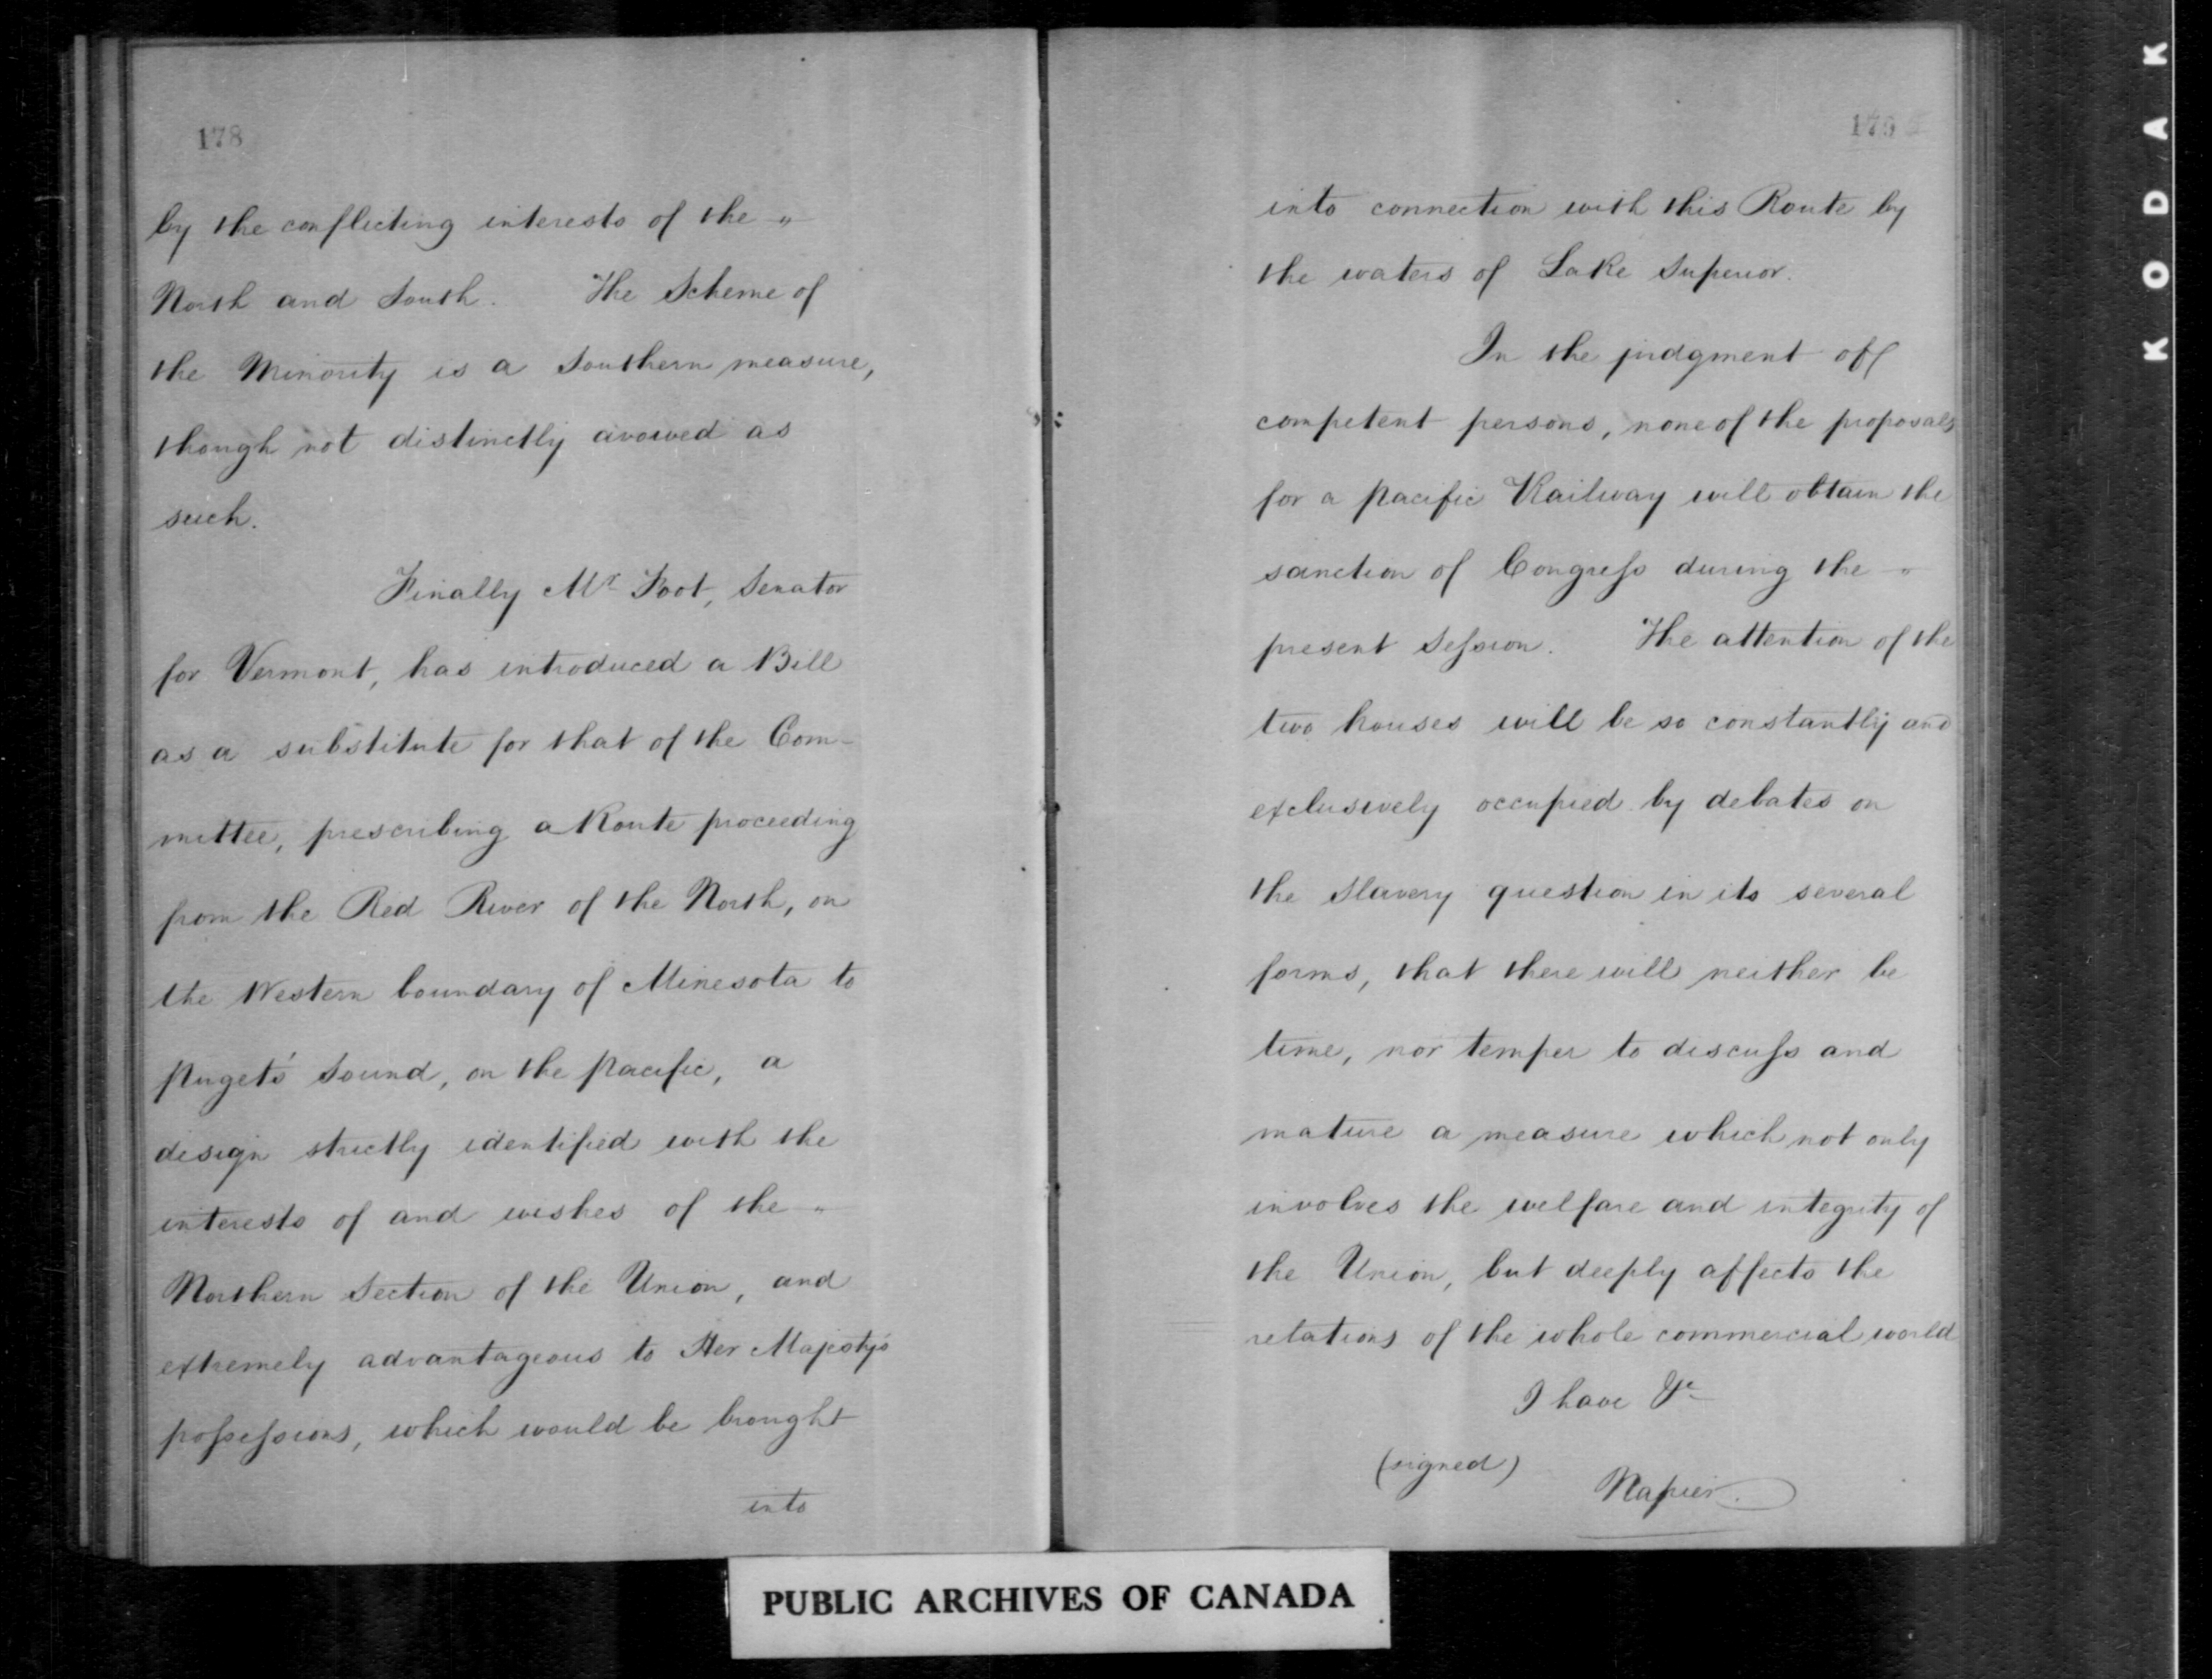 178
by the conflicting interests of the "
North and South. The Scheme of
the Minority is a Southern measure,
though not distinctly avowed as
such.
Finally Mr Foot, Senator
for Vermont, has introduced a Bill
as a substitute for that of the Com-
mittee, prescribing a Route proceeding
from the Red River of the North, on
the Western boundary of Minesota to
Puget's Sound, on the Pacific, a
design strictly identified with the
interests of and wishes of the "
Northern Section of the Union, and
extremely advantageous to Her Majesty's
possessions, which would be brought
into
179
into connection with this Route by
the waters of Lake Superior.
In the judgment of
competent persons, none of the proposals
for a Pacific Railway will obtain the
sanction of Congress during the "
present Session. The attention of the
two houses will be so constantly and
exclusively occupied by debates on
the Slavery question in its several
forms, that there will neither be
time, nor temper to discuss and
mature a measure which not only
involves the welfare and integrity of
the Union, but deeply affects the
relations of the whole commercial world
I have &c
(signed) Napier.
PUBLIC ARCHIVES OF CANADA
KODAK